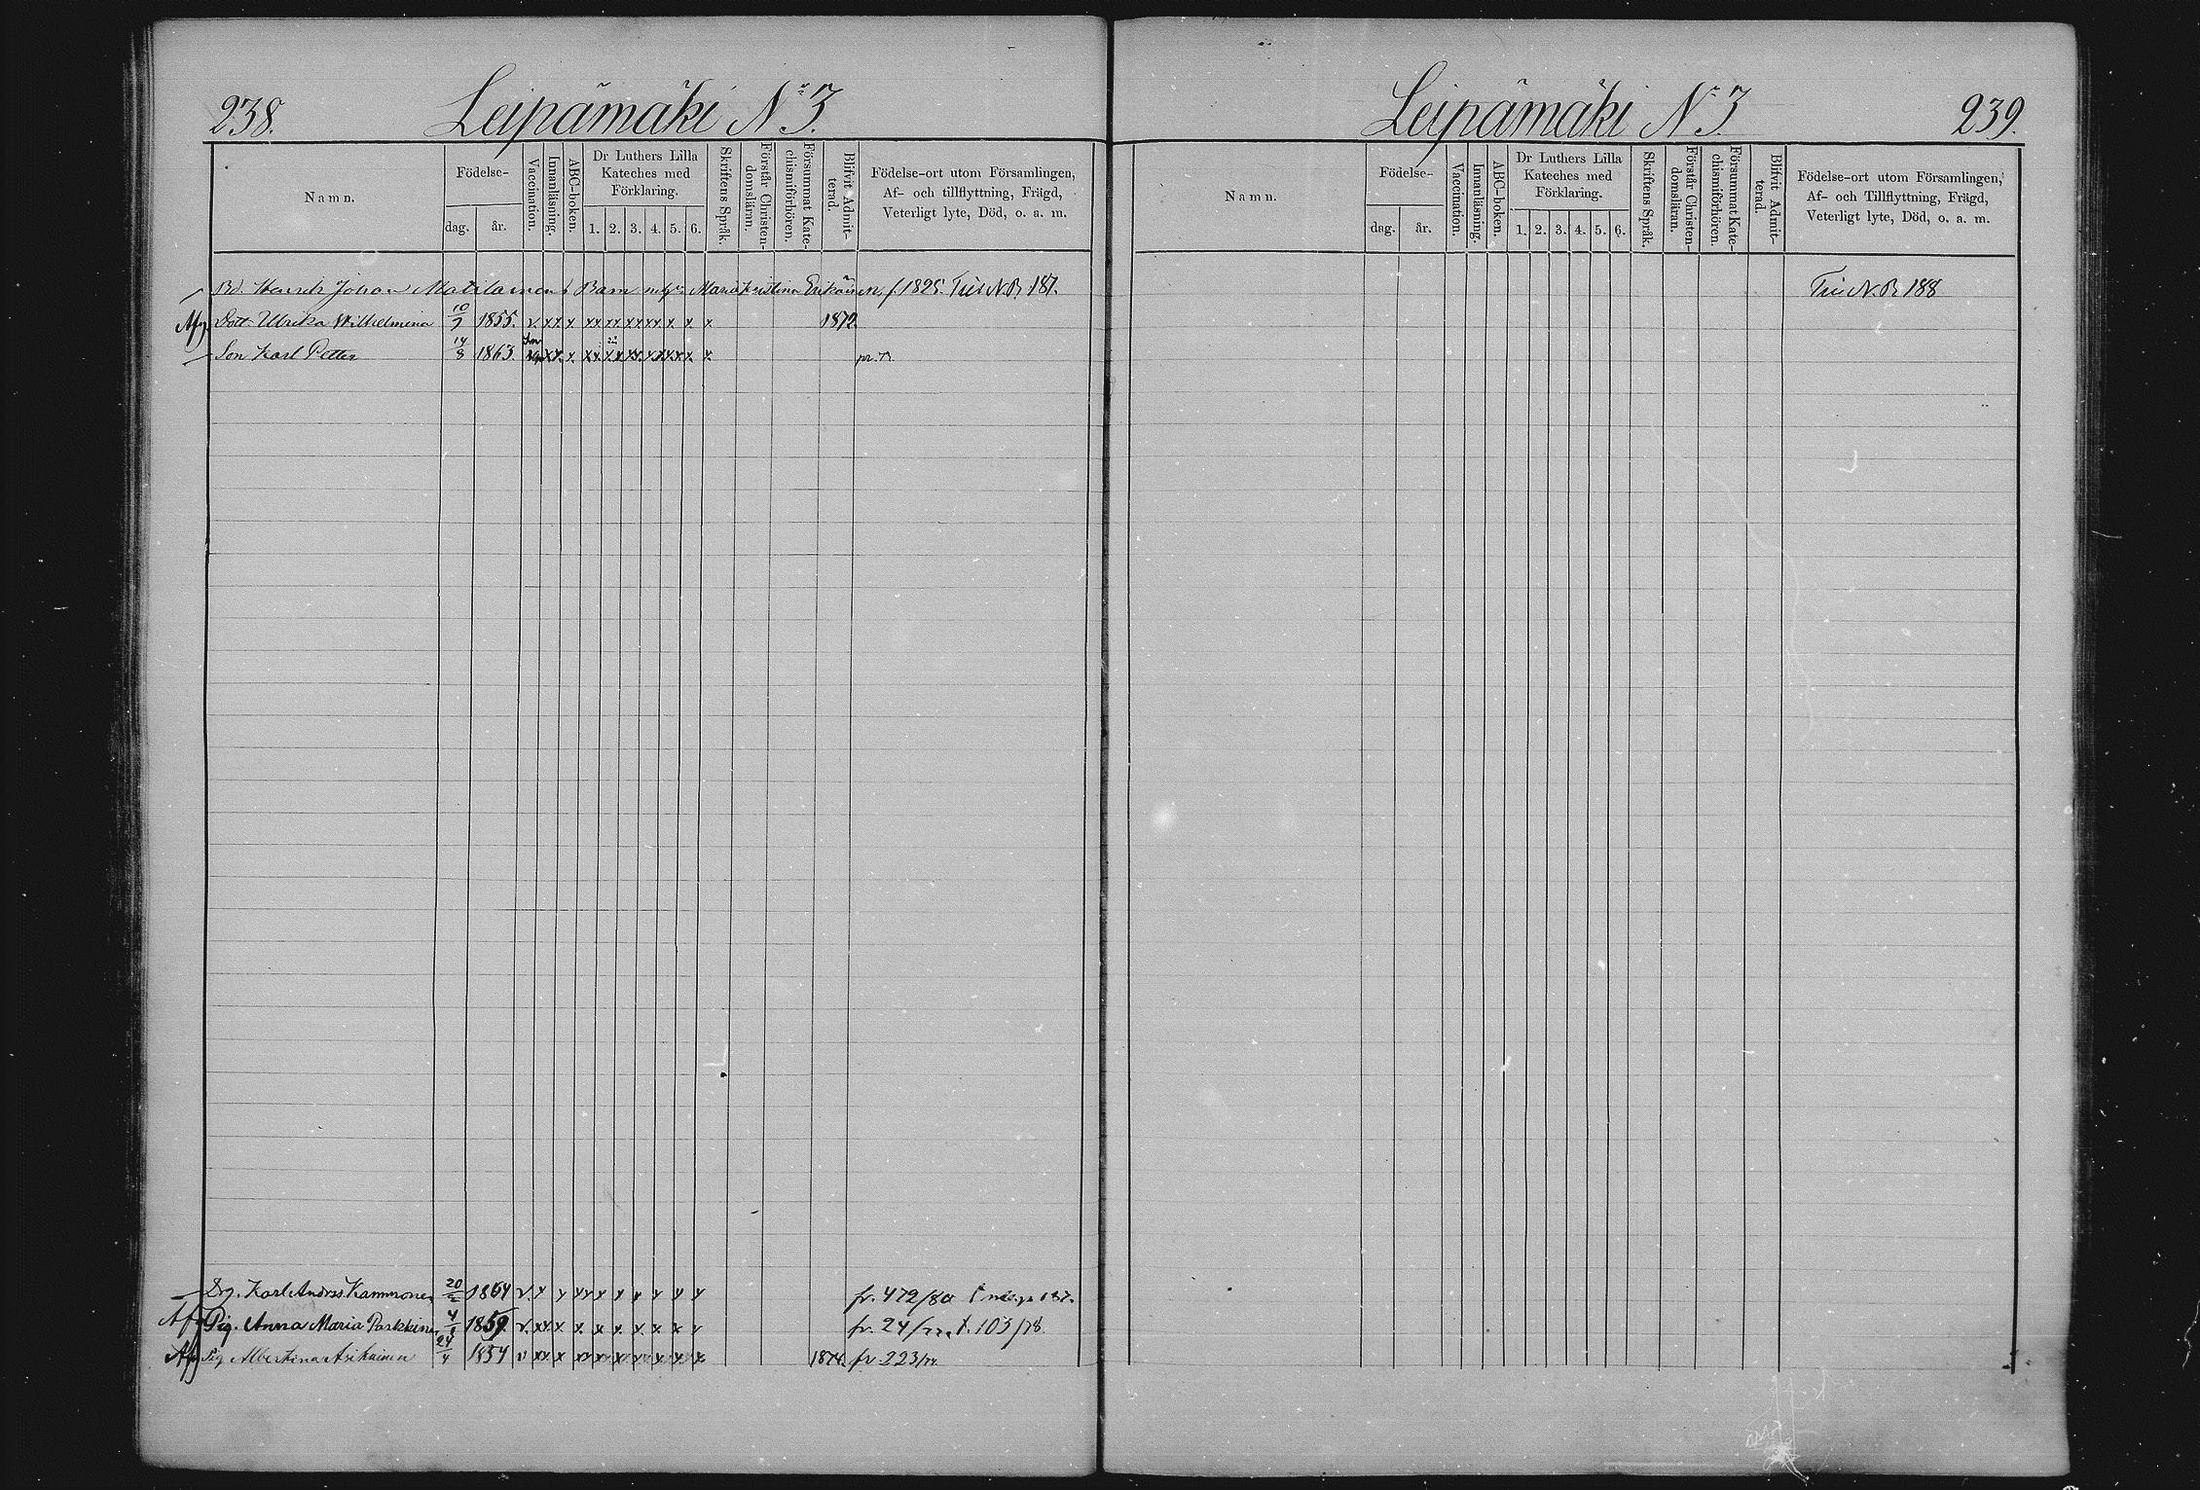 238. Leipämäki N:3.
Namn.
Födelse-
dag. år.
Vaccination.
Innanläsning.
ABC-boken.
Dr Luthers Lilla Kateches med Förklaring.
1. 2. 3. 4. 5. 6.
Skriftens Språk.
Förstår Christen-domsläran.
Försummat Kate-chismiförhören.
Blifvit Admit-terad.
Födelse-ort utom Församlingen,
Af- och tillflyttning, Frägd,
Veterligt lyte, Död, o. a. m.
Johan Matilainens Barn Maria Kristina f. 1825. N.B. 187.
Afg Dott. Ulrika Wilhelmina 10/9 1855. v. xx x xx xx xx xx x x x 1872
Son Karl Petter 14/8 1863.
Drg. Karl Andrss. Kammonen 20/2 1864 fr. 472/80
Afg Pig. Anna Maria Parkkinen 4/8 1859. fr. 24/72, t. 103/78.
Afg Pig Albertina Asikainen 24/4 1854 1874. fr 223/74
Leipämäki N:3. 239.
Namn.
Födelse-
dag. år.
Vaccination.
Innanläsning.
ABC-boken.
Dr Luthers Lilla Kateches med Förklaring.
1. 2. 3. 4. 5. 6.
Skriftens Språk.
Förstår Christen-domsläran.
Försummat Kate-chismiförhören.
Blifvit Admit-terad.
Födelse-ort utom Församlingen,
Af- och Tillflyttning, Frägd,
Veterligt lyte, Död, o. a. m.
N.B. 188